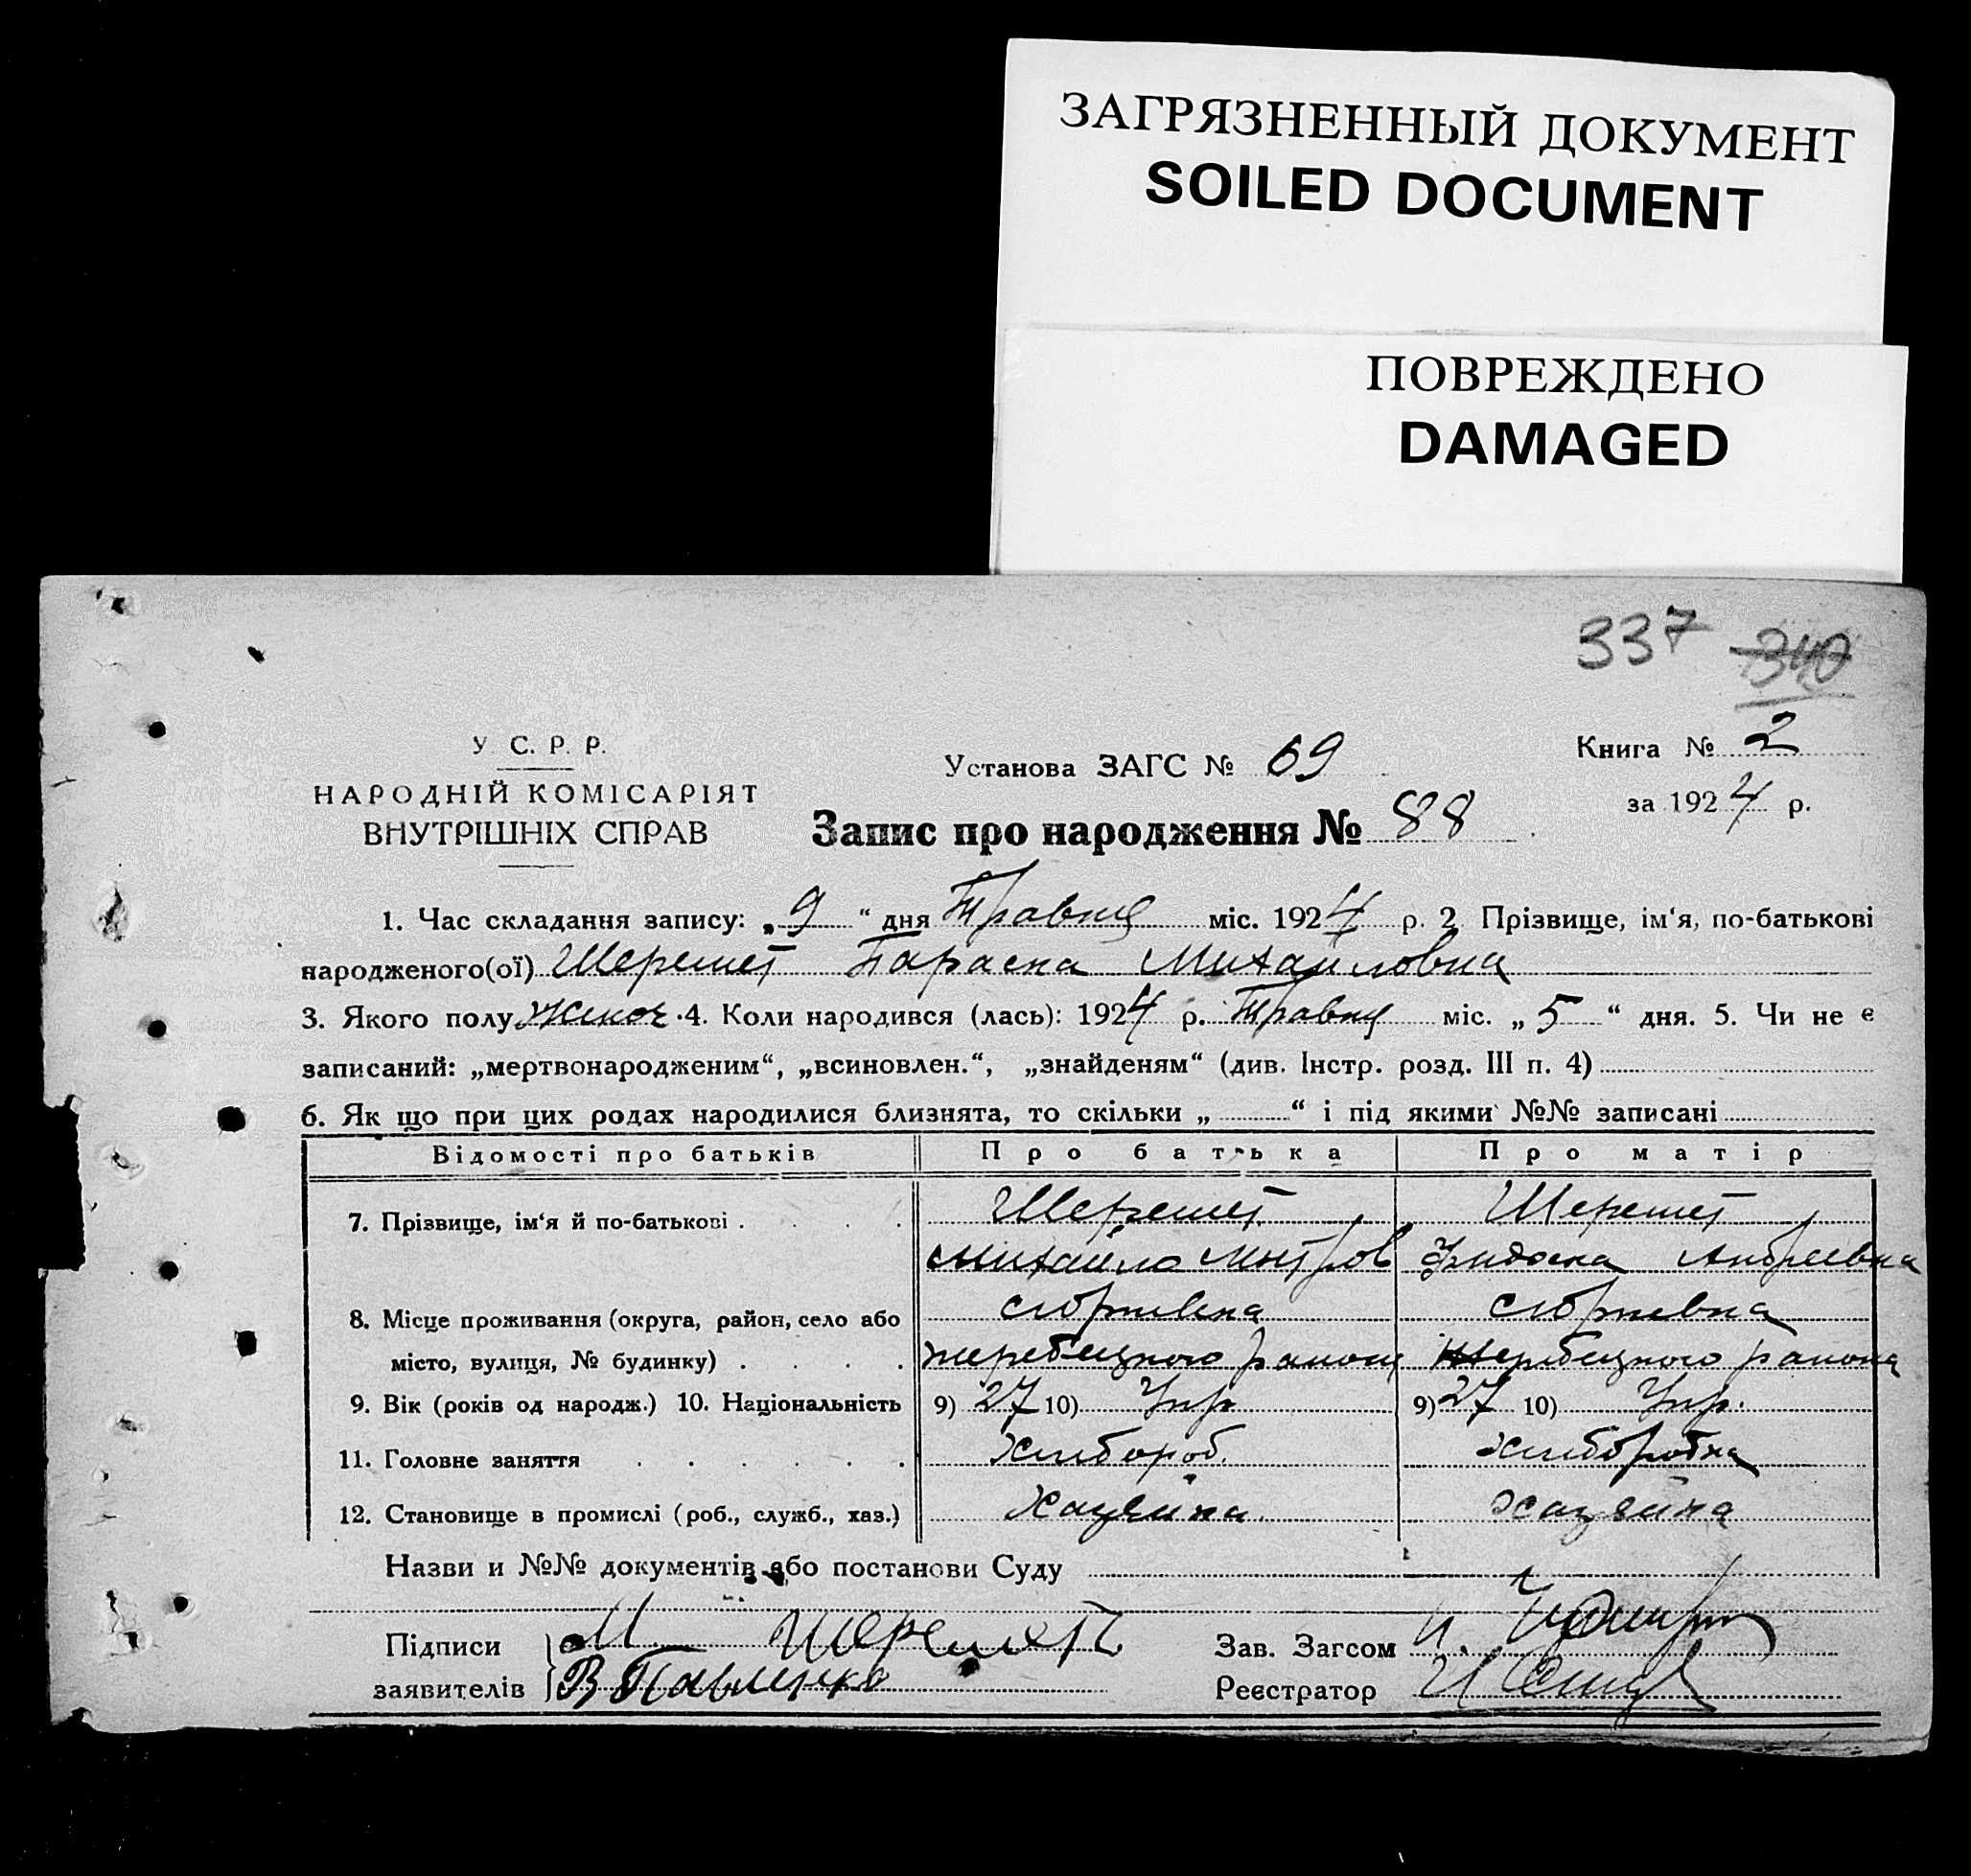 ЗАГРЯЗНЕННЫЙ ДОКУМЕНТ
SOILED DOCUMENT
ПОВРЕЖДЕНО
DAMAGED
337 340
У. С. Р. Р.
НАРОДНІЙ КОМІСАРІЯТ
ВНУТРІШНІХ СПРАВ
Установа ЗАГС № 69
Книга № 2
за 1924 р.
Запис про народження № 88
1. Час складання запису: „9“ дня Травня міс. 1924 р. 2. Прізвище, ім‘я, по-батькові
народженого(ої) Шеремет Параска Михайловна
3. Якого полу Жіноч. 4. Коли народився (лась): 1924 р. Травня міс. „5“ дня. 5. Чи не є
записаний: „мертвонародженим“, „всиновлен.“, „знайденям“ (див. Інстр. розд. III п. 4)
6. Як що при цих родах народилися близнята, то скільки „ “ і під якими №№ записані
Відомості про батьків Про батька Про матір
7. Прізвище, ім‘я й по-батькові Шеремет Шеремет
Михайло Митров Андреевна
8. Місце проживання (округа, район, село або
місто, вулиця, № будинку) района района
9. Вік (років од народж.) 10. Національність 9) 27 10) Укр. 9) 27 10) Укр.
11. Головне заняття Хлібороб. хліборобка
12. Становище в промислі (роб., служб., хаз.) Хазяина хазяина
Назви и №№ документів або постанови Суду
Підписи М Шеремет Зав. Загсом
заявителів В Павленко Реєстратор